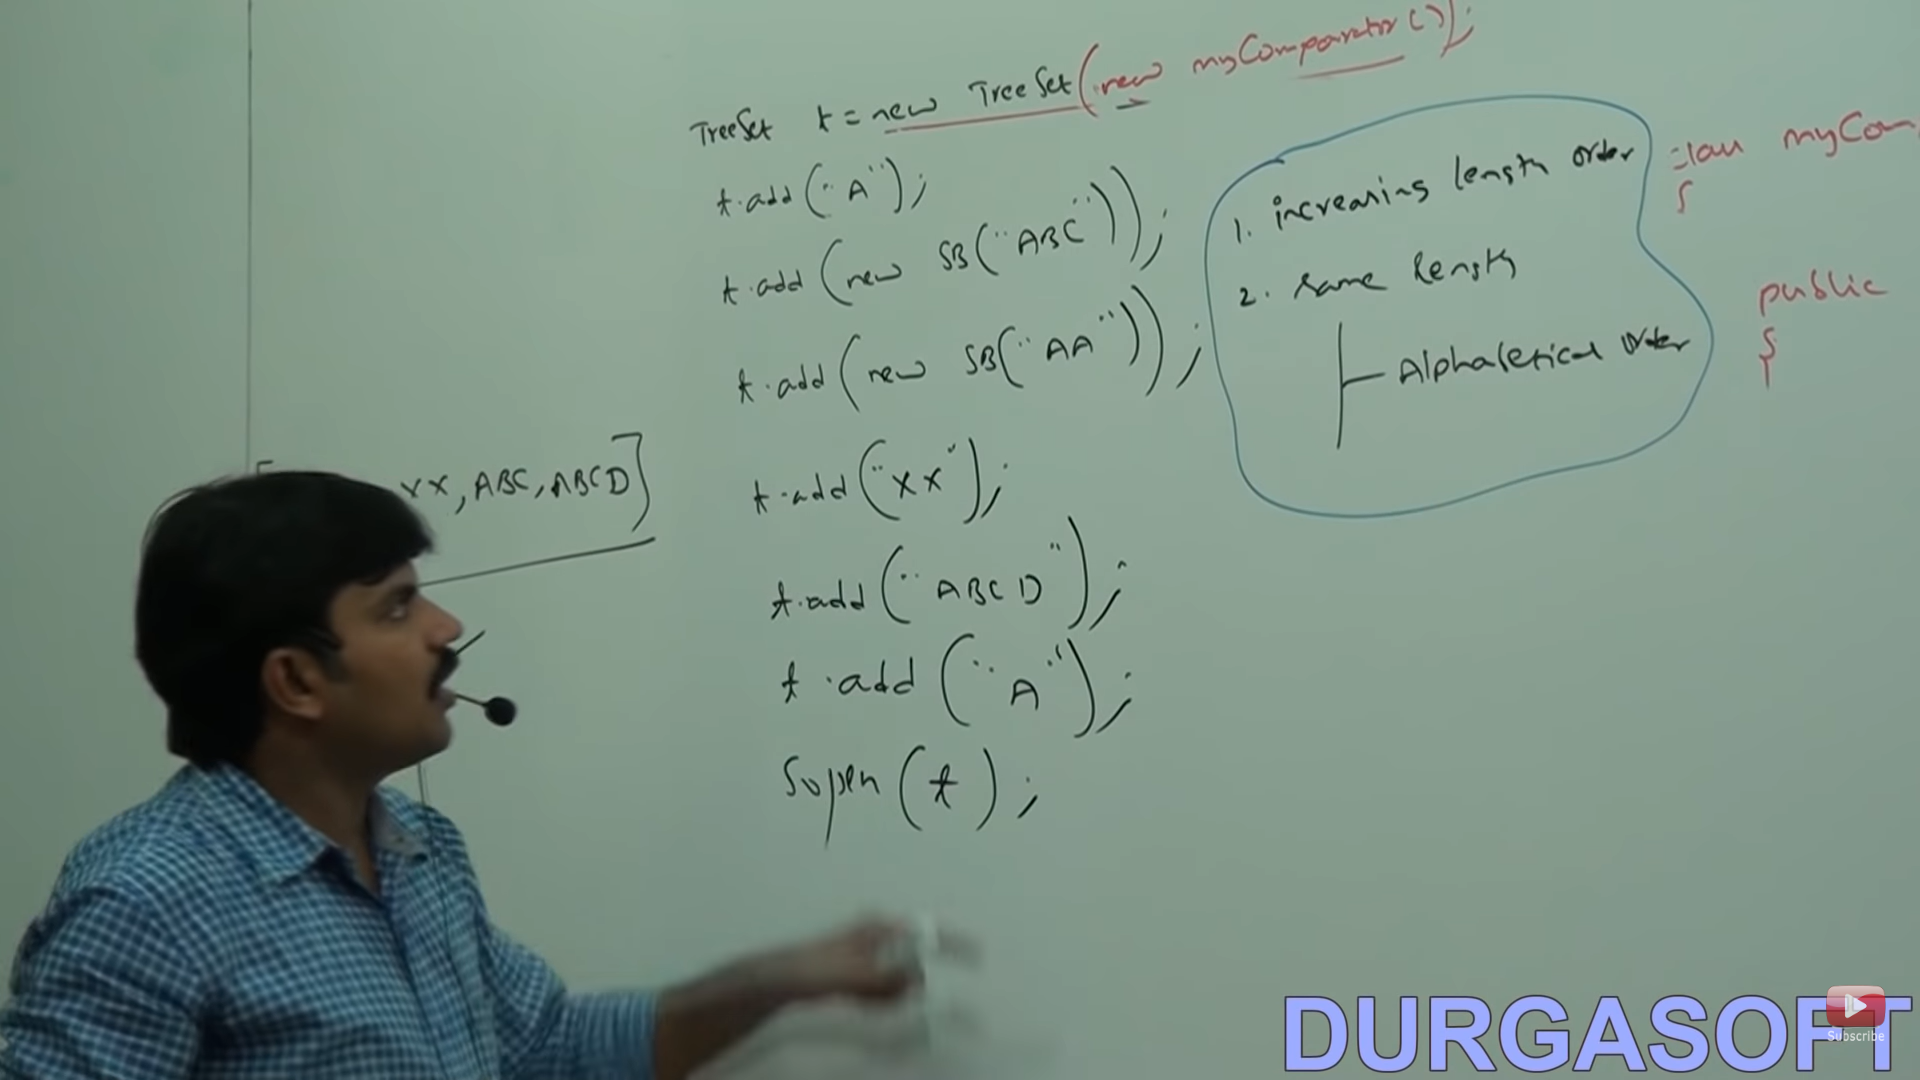 TreeSet t = new TreeSet(new myComparator());
t.add("A");
t.add(new SB("ABC"));
t.add(new SB("AA"));
t.add("XX");
t.add("ABCD");
t.add("A");
Sopln(t);
1. increasing length order
2. same length
Alphabetical order
class myCom
{
public
{
XX, ABC, ABCD]
DURGASOFT
Subscribe